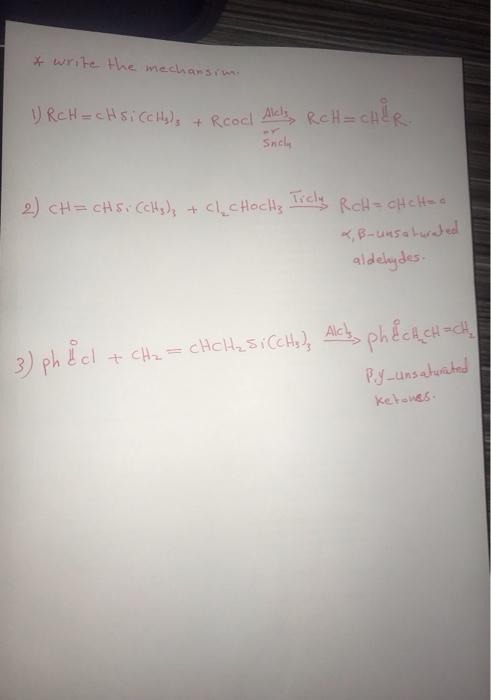 * write the mechansim.
1) RCH = CHSi(CH3)3 + RCOCl AlCl3 or SnCl4 → RCH = CHCR. O
2) CH = CHSi(CH3)3 + Cl2CHOCH3 TiCl4 → RCH = CHCH=O
α,β-unsaturated
aldehydes.
3) phCCl O + CH2 = CHCH2Si(CH3)3 AlCl3 → phCCH2CH=CH2 O
β,γ-unsaturated
ketones.